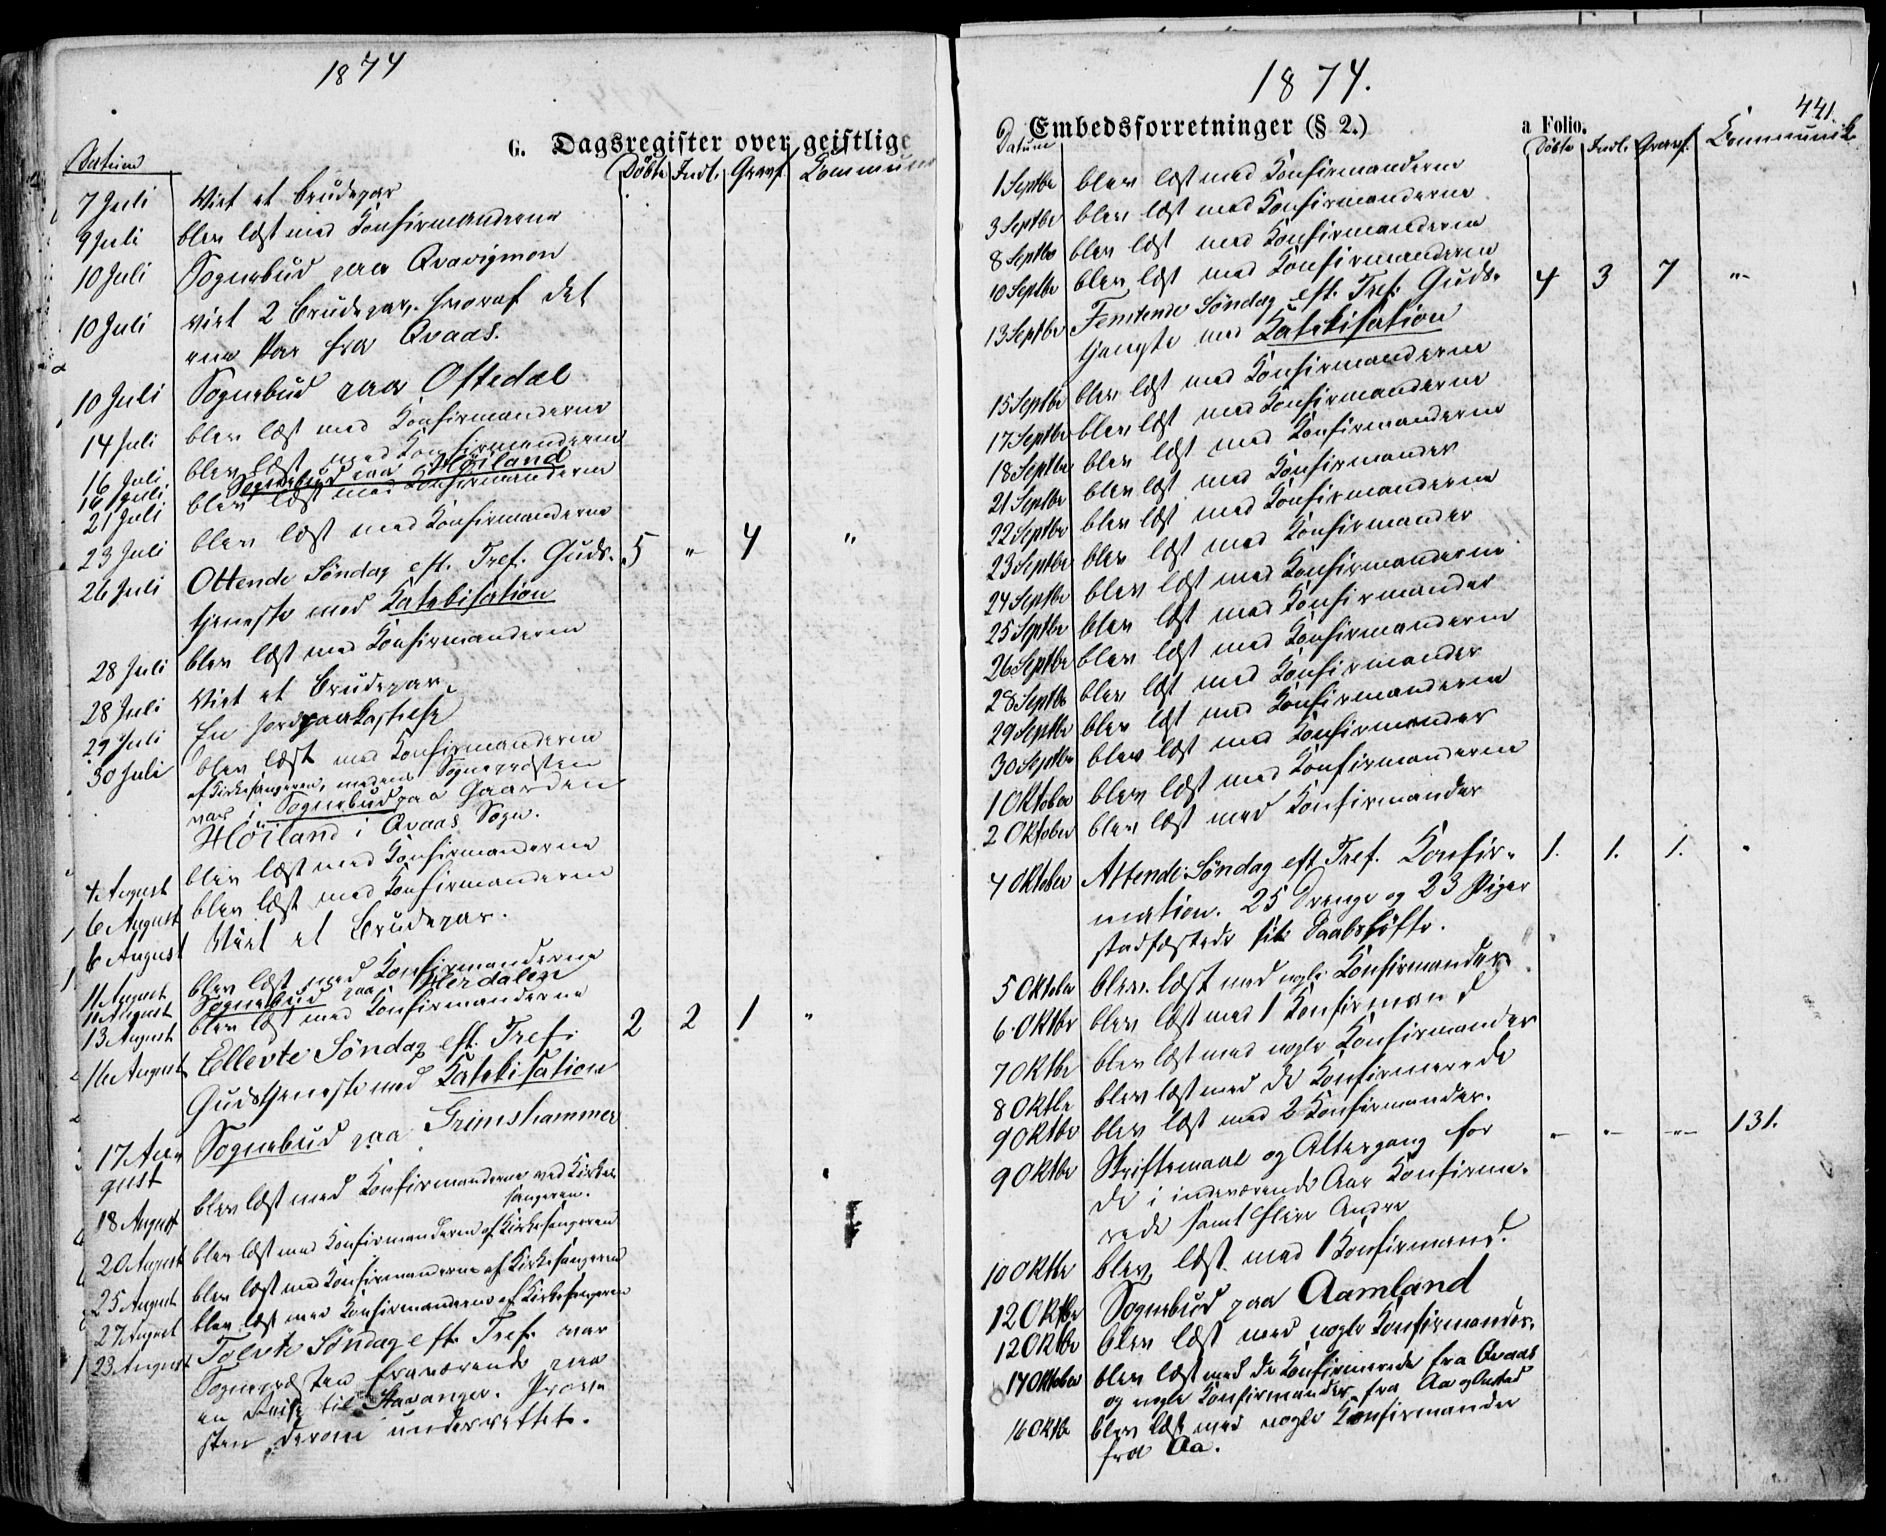 1874
G. Dagsregister over geistlige
Datum Døbte Indl. Gravf. Kommuni
7 Juli Viet et Brudepar
9 Juli blev læst med Konfirmanderne
10 Juli Sognebud paa Qvavigmoen
10 Juli viet 2 Brudepar, hvoraf det
ene Par fra Qvaas.
10 Juli Sognebud paa Oftedal
14 Juli blev læst med Konfirmanderne
16 Juli blev læst med Konfirmanderne
16 Juli Sognebud paa Høiland
21 Juli blev læst med Konfirmanderne
23 Juli blev læst med Konfirmanderne
26 Juli Ottende Søndag eft. Tref. Guds- 5 " 4 "
tjeneste med Katekisation
28 Juli blev læst med Konfirmanderne
28 Juli Viet et Brudepar
29 Juli En Jordpaakastelse
30 Juli blev læst med Konfirmanderne
af Kirkesangeren, medens Sognepræsten
var i Sognebud paa Gaarden
Høiland i Qvaas Sogn.
4 August blev læst med Konfirmanderne
6 August blev læst med Konfirmanderne
6 August Viet et Brudepar.
11 August blev læst med Konfirmanderne
11 August Sognebud paa Herdalen
13 August blev læst med Konfirmanderne
16 August Ellevte Søndag eft. Tref. 2 2 1 "
Gudstjeneste med Katekisation
17 Au- Sognebud paa Grimshammer
gust
18 August blev læst med Konfirmanderne ved Kirke-
sangeren.
20 August blev læst med Konfirmanderne af Kirkesangeren
25 August blev læst med Konfirmanderne af Kirkesangeren
27 August blev læst med Konfirmanderne af Kirkesangeren
23 August Tolvte Søndag eft. Tref. var
Sognepræsten fraværende paa
en Reise til Stavanger. Prov-
sten derom underrettet.
1874.
441.
Embedsforretninger (§ 2.) a Folio.
Datum Døbte Indl. Gravf. Kommunik.
1 Septbr blev læst med Konfirmanderne
3 Septbr blev læst med Konfirmanderne
8 Septbr blev læst med Konfirmanderne
10 Septbr blev læst med Konfirmanderne
13 Septbr Femtende Søndag eft. Tref. Guds- 4 3 7 "
tjeneste med Katekisation
15 Septbr blev læst med Konfirmanderne
17 Septbr blev læst med Konfirmanderne
18 Septbr blev læst med Konfirmanderne
21 Septbr blev læst med Konfirmander
22 Septbr blev læst med Konfirmanderne
23 Septbr blev læst med Konfirmander
24 Septbr blev læst med Konfirmanderne
25 Septbr blev læst med Konfirmander
26 Septbr blev læst med Konfirmanderne
28 Septbr blev læst med Konfirmander
29 Septbr blev læst med Konfirmanderne
30 Septbr blev læst med Konfirmander
1 Oktober blev læst med Konfirmanderne
2 Oktober blev læst med Konfirmander
4 Oktober Attende Søndag eft Tref. Konfir- 1. 1. 1. "
mation. 25 Drenge og 23 Piger
stadfæstede sit Daabsløfte.
5 Oktober blev læst med nogle Konfirmander
6 Oktbr blev læst med 1 Konfirmand
7 Oktbr blev læst med nogle Konfirmander
8 Oktbr blev læst med de Konfirmerede
9 Oktbr blev læst med 2 Konfirmander.
9 Oktbr Skriftemaal og Altergang for " " " 131.
de i indeværende Aar Konfirme-
rede samt flere Andre
10 Oktbr blev læst med 1 Konfirmand.
12 Oktbr Sognebud paa Aamland
12 Oktbr blev læst med nogle Konfirmander.
14 Oktober blev læst med de Konfirmerede fra Qvaas
og nogle Konfirmander fra Aa og
16 Oktbr blev læst med nogle Konfirmander
fra Aa.